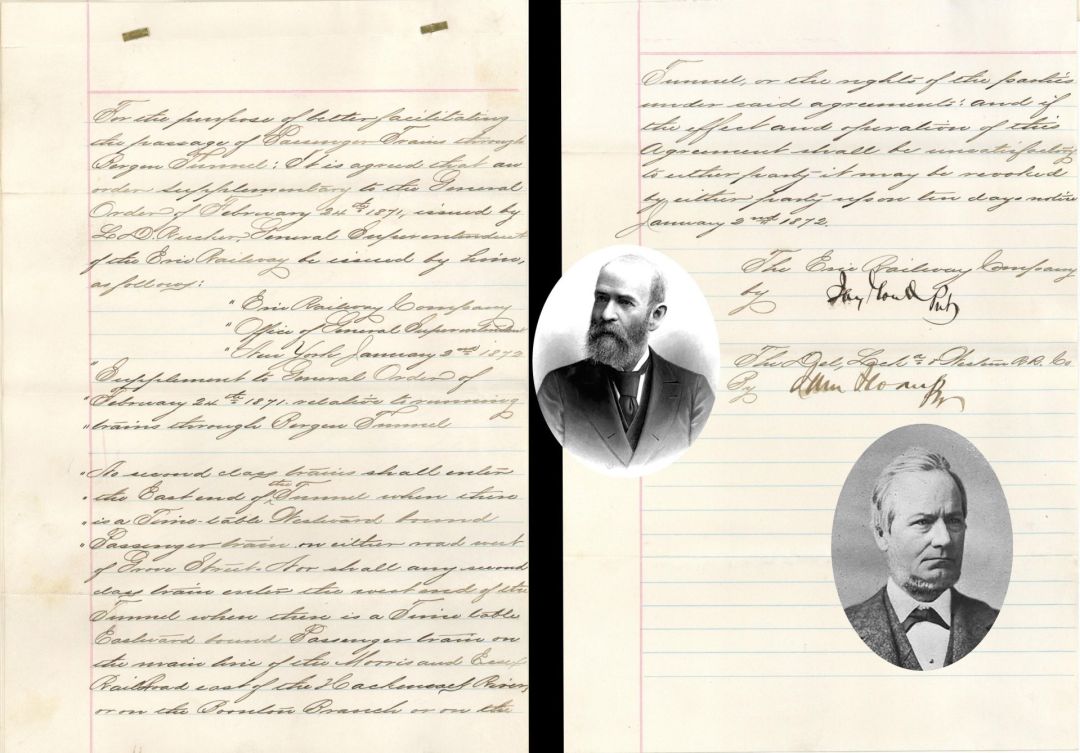 For the purpose of better facilitating
the passage of Passenger Trains through
Bergen Tunnel: It is agreed that an
order supplementary to the General
Order of February 24th 1871, issued by
L. D. Rucker, General Superintendent
of the Erie Railway be issued by him,
as follows:
" Erie Railway Company
" Office of General Superintendent
" New York January 2nd 1872
" Supplement to General Order of
" February 24th 1871. relative to running
" trains through Bergen Tunnel
" No second class trains shall enter
" the East end of the Tunnel when there
" is a Time-table Westward bound
" Passenger train on either road west
of Grove Street. Nor shall any second
class train enter the west end of the
Tunnel when there is a Time table
Eastward bound Passenger train on
the main line of the Morris and Essex
Railroad east of the Hackensack River,
or on the Boonton Branch or on the
Tunnel, or the rights of the parties
under said agreements: and if
the effect and operation of this
Agreement shall be unsatisfactory
to either party it may be revoked
by either party upon ten days notice
January 2nd 1872.
The Erie Railway Company
by Jay Gould Prt
The Del, Lack'a & Western RR. Co
By Sam Sloan Prt